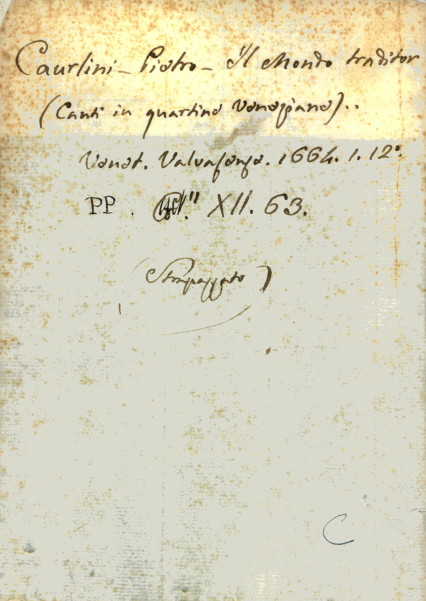 Caurlini - Pietro - Il Mondo traditor
(Canti in quartine Veneziane)..
Venet. Valvasense. 1664. 1. 12°.
PP . XII. 63.
(Strapazzato)
C